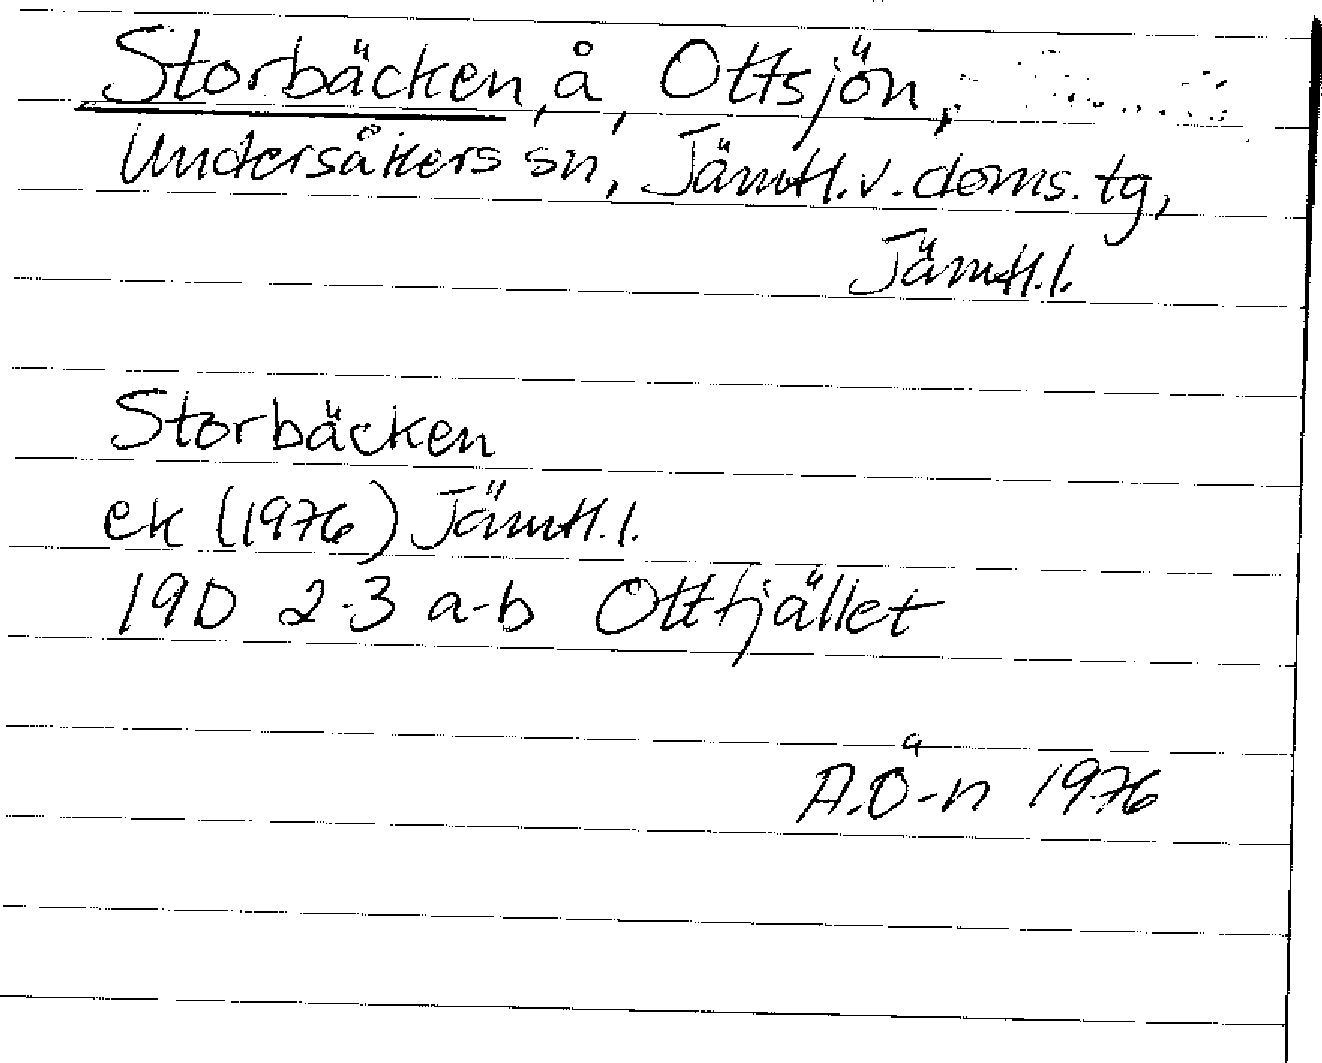 Storbäcken, å, Ottsjön,
Undersåkers sn, Jämtl. v. doms. tg,
Jämtl. l.
Storbäcken
ek (1976) Jämtl. l.
19D 2-3 a-b Ottfjället
A.Ö-n 1976